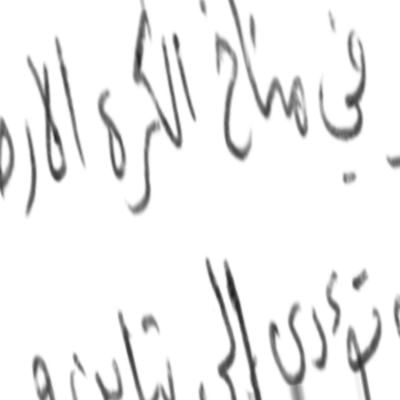 في مناخ الكرة الار
تؤدي الى تباين و